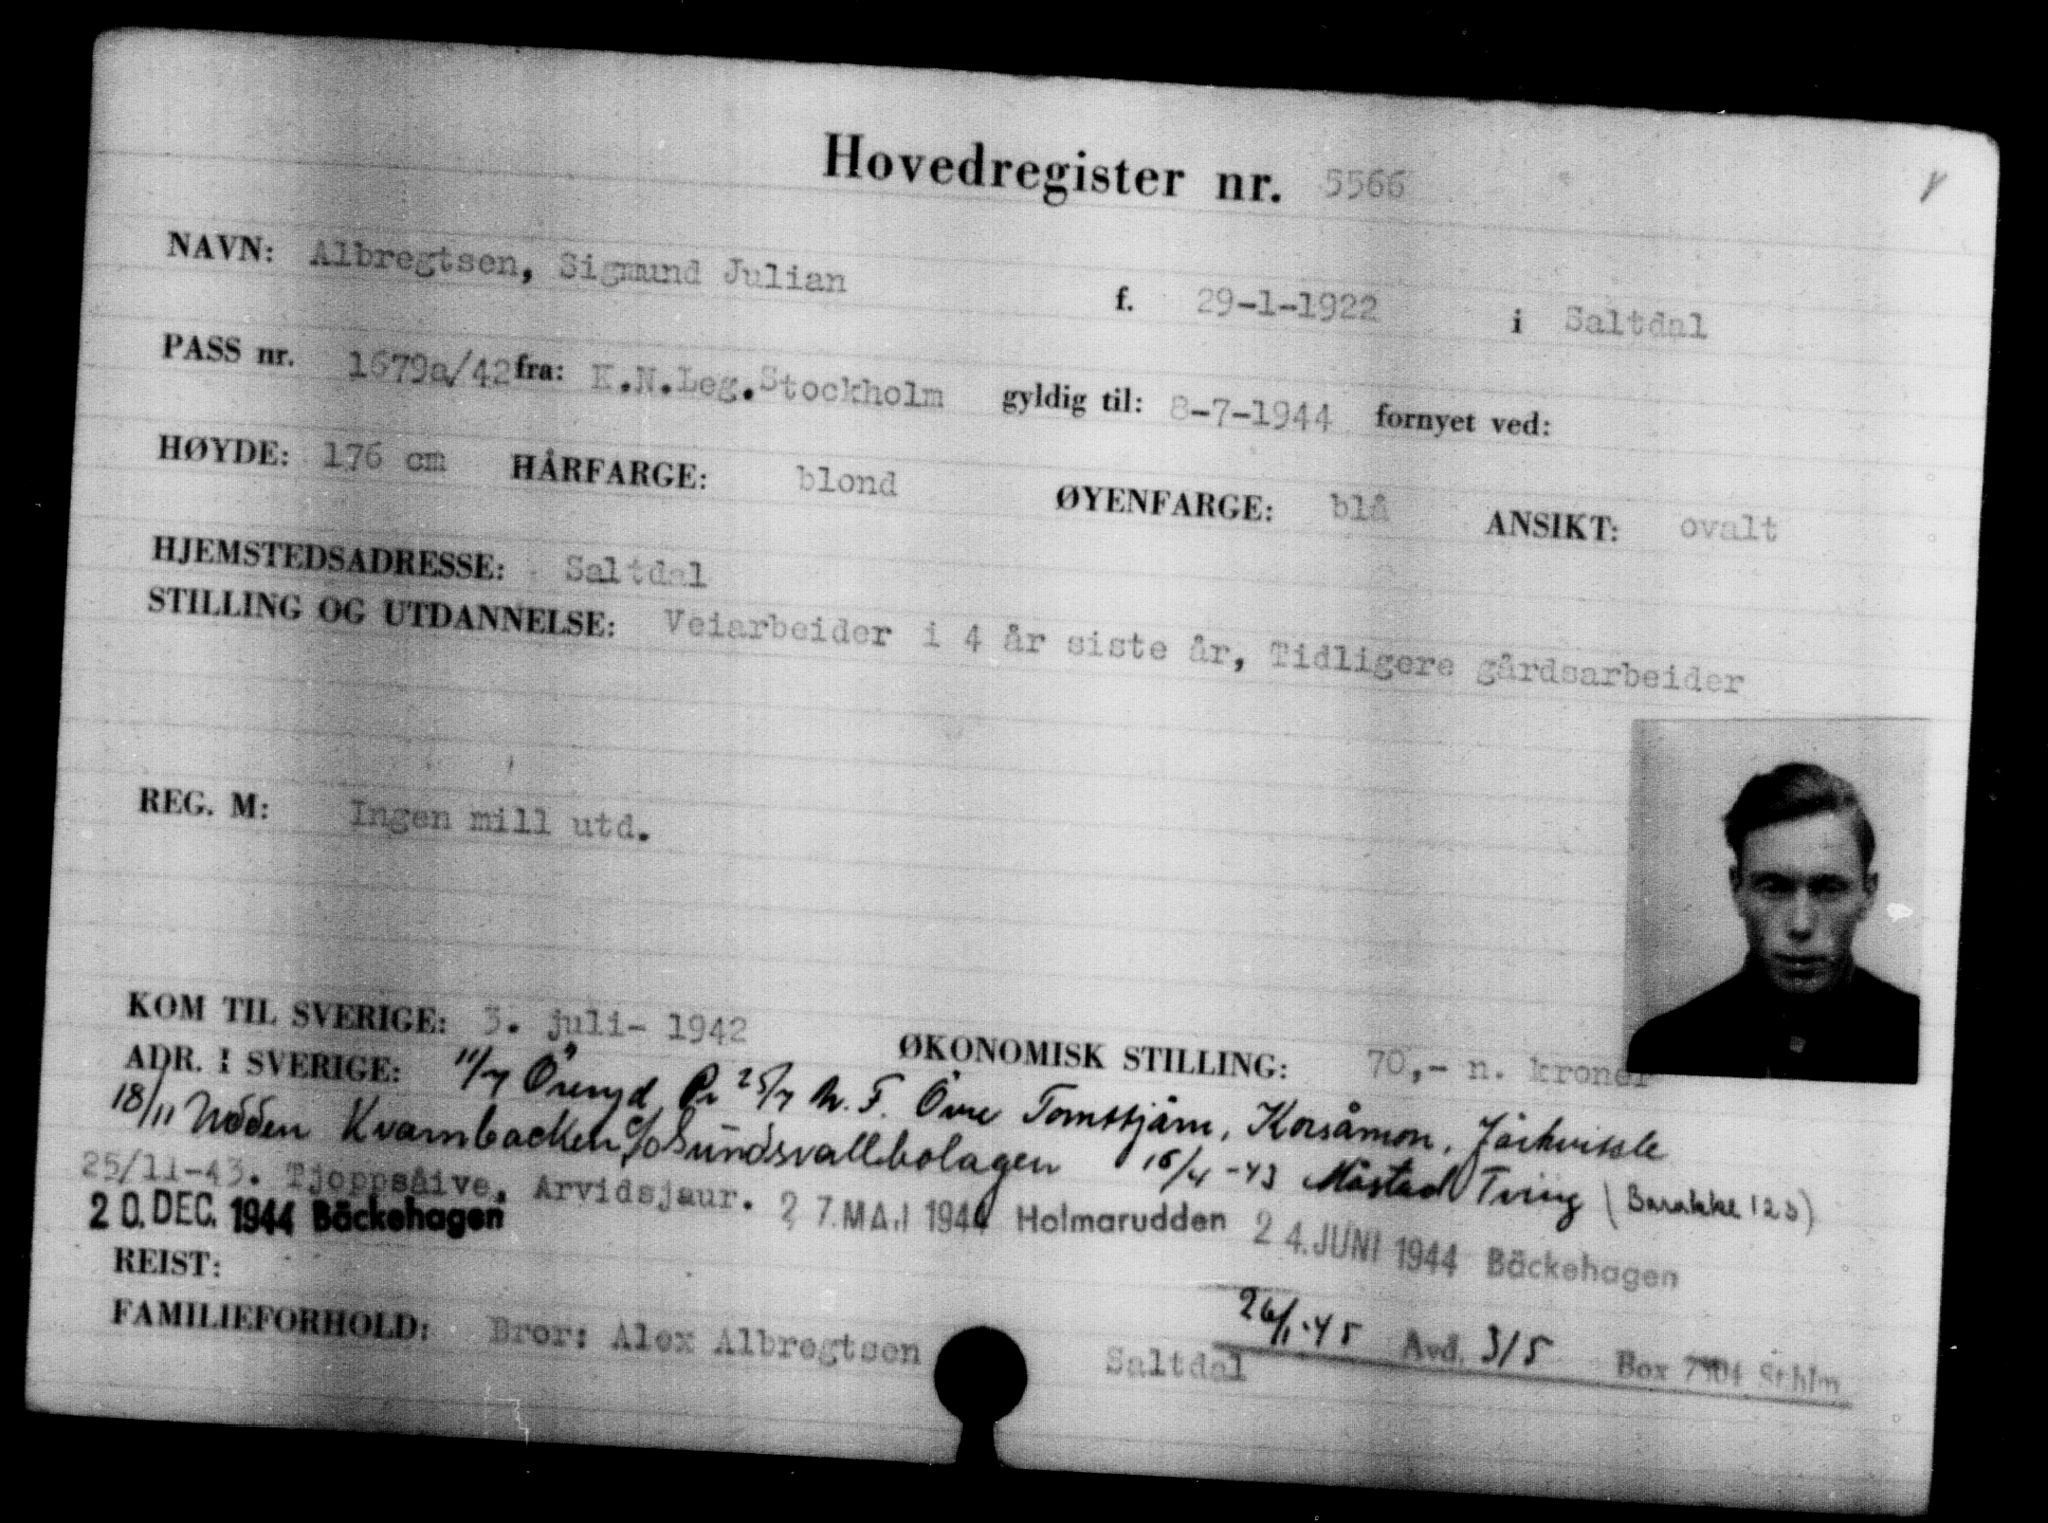 Hovedregister nr. 5566
NAVN: Albregtsen, Sigmund Julian f. 29-1-1922 i Saltdal
PASS nr. 1679a/42 fra: K.N.Leg.Stockholm gyldig til: 8-7-1944 fornyet ved:
HØYDE: 176 cm HÅRFARGE: blond ØYENFARGE: blå ANSIKT: ovalt
HJEMSTEDSADRESSE: Saltdal
STILLING OG UTDANNELSE: Veiarbeider i 4 år siste år, Tidligere gårdsarbeider
REG. M: Ingen mill utd.
KOM TIL SVERIGE: 3. juli- 1942 ØKONOMISK STILLING: 70,- n. kroner
ADR. I SVERIGE: 11/7 Öreryd 25/7 Övre Tomstjärn, Korsåmon, Järkvissle
18/11 Kvarnbacken c/o Sundsvallbolagen 16/4 -43 Måstad Tving (Barakke 12 B)
25/11-43. Tjoppsåive, Arvidsjaur. 27. MAJ 1944 Holmarudden 24. JUNI 1944 Bäckehagen
20. DEC. 1944 Bäckehagen
REIST:
26/1-45 Avd. 3/5 Box 7904 Sthlm
FAMILIEFORHOLD: Bror: Alex Albregtsen Saltdal